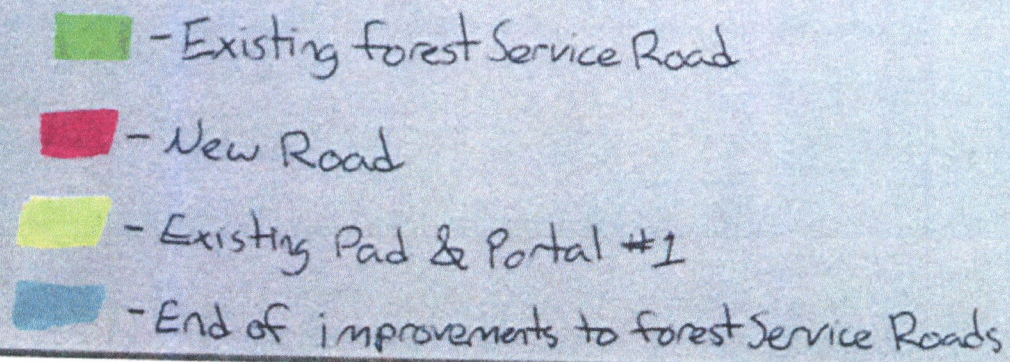 - Existing forest Service Road
- New Road
- Existing Pad & Portal #1
- End of improvements to forest Service Roads